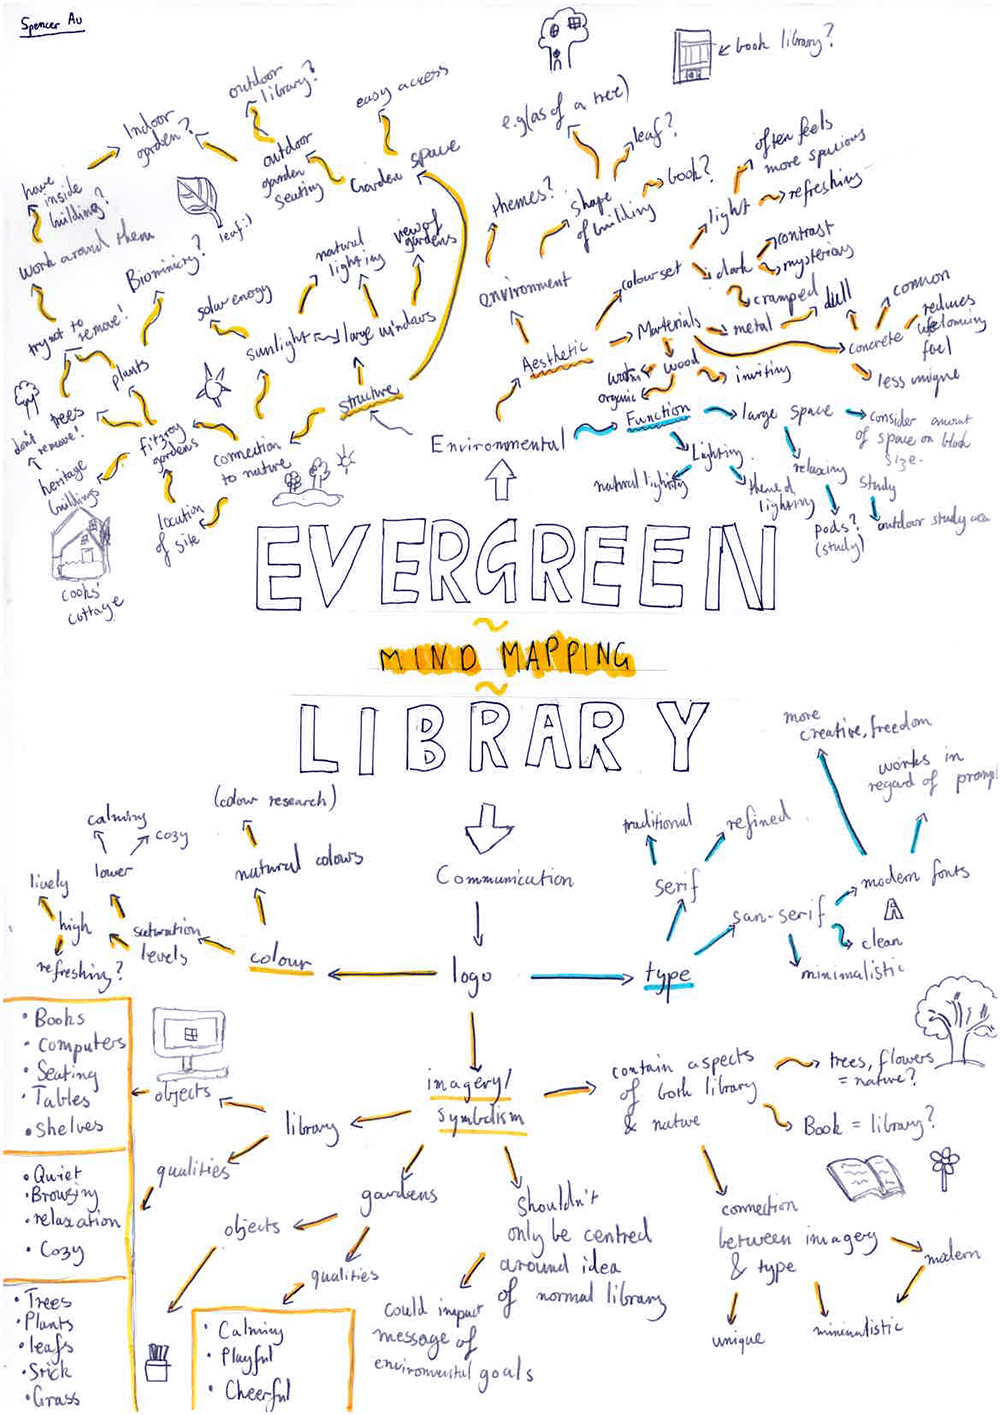 Spencer Au
book library?
e.g (as of a tree)
easy access
outdoor
library?
Indoor
garden?
outdoor
garden
seating
Garden space
have
inside
building?
work around them
try not to
remove!
Biomimicry?
leaf:)
natural
lighting
view of
gardens
solar energy
sunlight
large windows
plants
trees
don't
remove!
heritage
buildings
fitzroy
gardens
connection
to nature
structure
location
of site
cooks'
cottage
leaf?
book?
themes?
shape
of building
environment
Aesthetic
colour set
light
often feels
more spacious
refreshing
dark
contrast
mysterious
cramped
Materials
metal
dull
concrete
common
reduces
welcoming
feel
less unique
wood
warm
organic
inviting
Environmental
Function
large space
consider amount
of space on block
size.
Lighting
natural lighting
themed
lighting
relaxing
study
pods?
(study)
outdoor study area
EVERGREEN
MIND MAPPING
LIBRARY
Communication
logo
colour
natural colours
(colour research)
saturation
levels
lower
calming
cozy
high
lively
refreshing?
type
serif
traditional
refined
san-serif
modern fonts
more
creative, freedom
works in
regard of prompt
A
clean
minimalistic
imagery/
symbolism
contain aspects
of both library
& nature
trees, flowers
= nature?
Book = library?
connection
between imagery
& type
modern
unique
minimalistic
Shouldn't
only be centred
around idea
of normal library
could impact
message of
environmental goals
library
objects
• Books
• Computers
• Seating
• Tables
• Shelves
qualities
• Quiet
• Browsing
• relaxation
• Cozy
gardens
objects
• Trees
• Plants
• leafs
• Stick
• Grass
qualities
• Calming
• Playful
• Cheerful